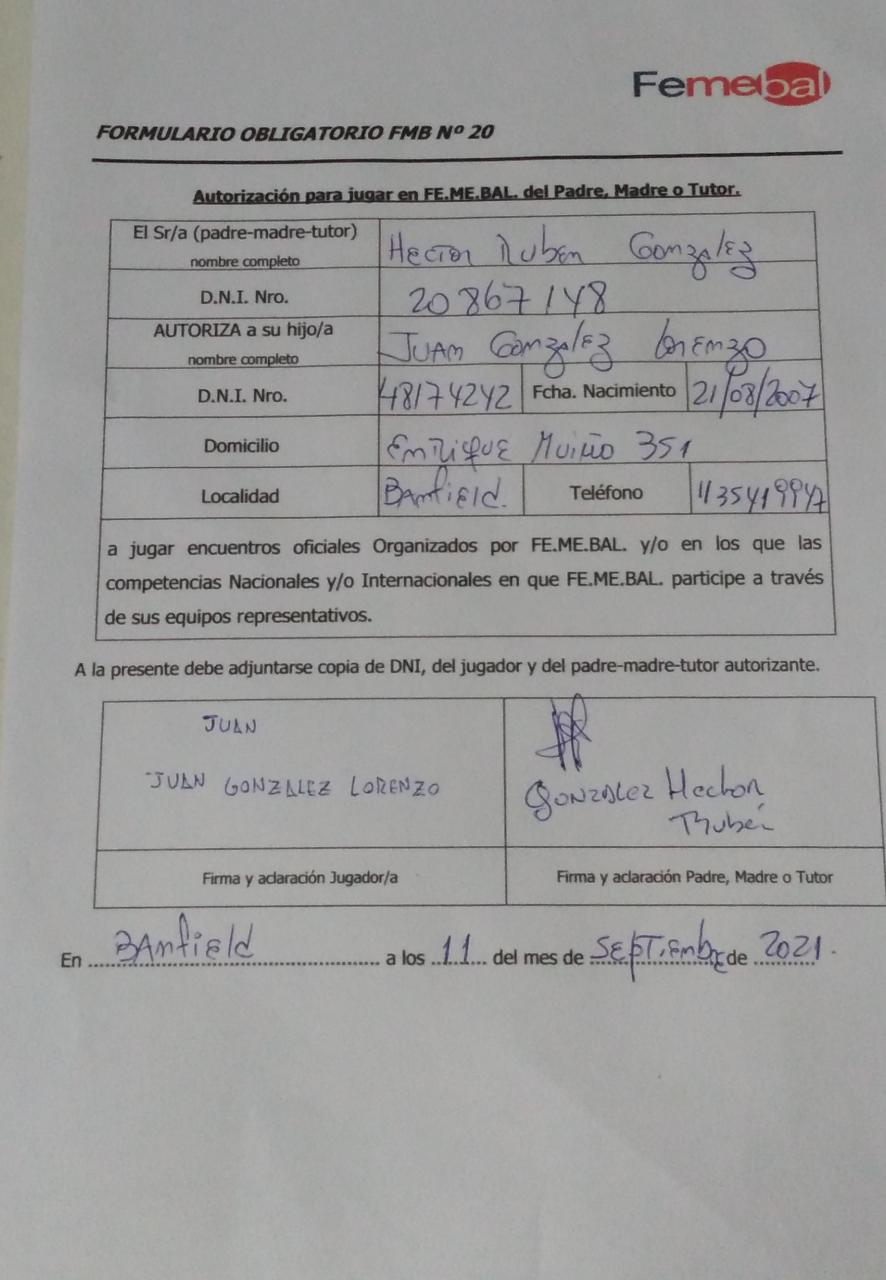 Femebal
FORMULARIO OBLIGATORIO FMB Nº 20
Autorización para jugar en FE.ME.BAL. del Padre, Madre o Tutor.
El Sr/a (padre-madre-tutor) Hector Ruben Gonzalez
nombre completo
D.N.I. Nro. 20867148
AUTORIZA a su hijo/a JUAM Gonzalez Lorenzo
nombre completo
D.N.I. Nro. 48174242 Fcha. Nacimiento 21/08/2007
Domicilio Enrique Muiño 351
Localidad Banfield. Teléfono 1135419947
a jugar encuentros oficiales Organizados por FE.ME.BAL. y/o en los que las
competencias Nacionales y/o Internacionales en que FE.ME.BAL. participe a través
de sus equipos representativos.
A la presente debe adjuntarse copia de DNI, del jugador y del padre-madre-tutor autorizante.
JUAN
JUAN GONZALEZ LORENZO
GONZALEZ Hector
Ruben
Firma y aclaración Jugador/a Firma y aclaración Padre, Madre o Tutor
En Banfield a los 11 del mes de Septiembre de 2021.